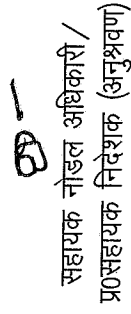 सहायक नोडल अधिकारी /
प्र०सहायक निदेशक (अनुश्रवण)